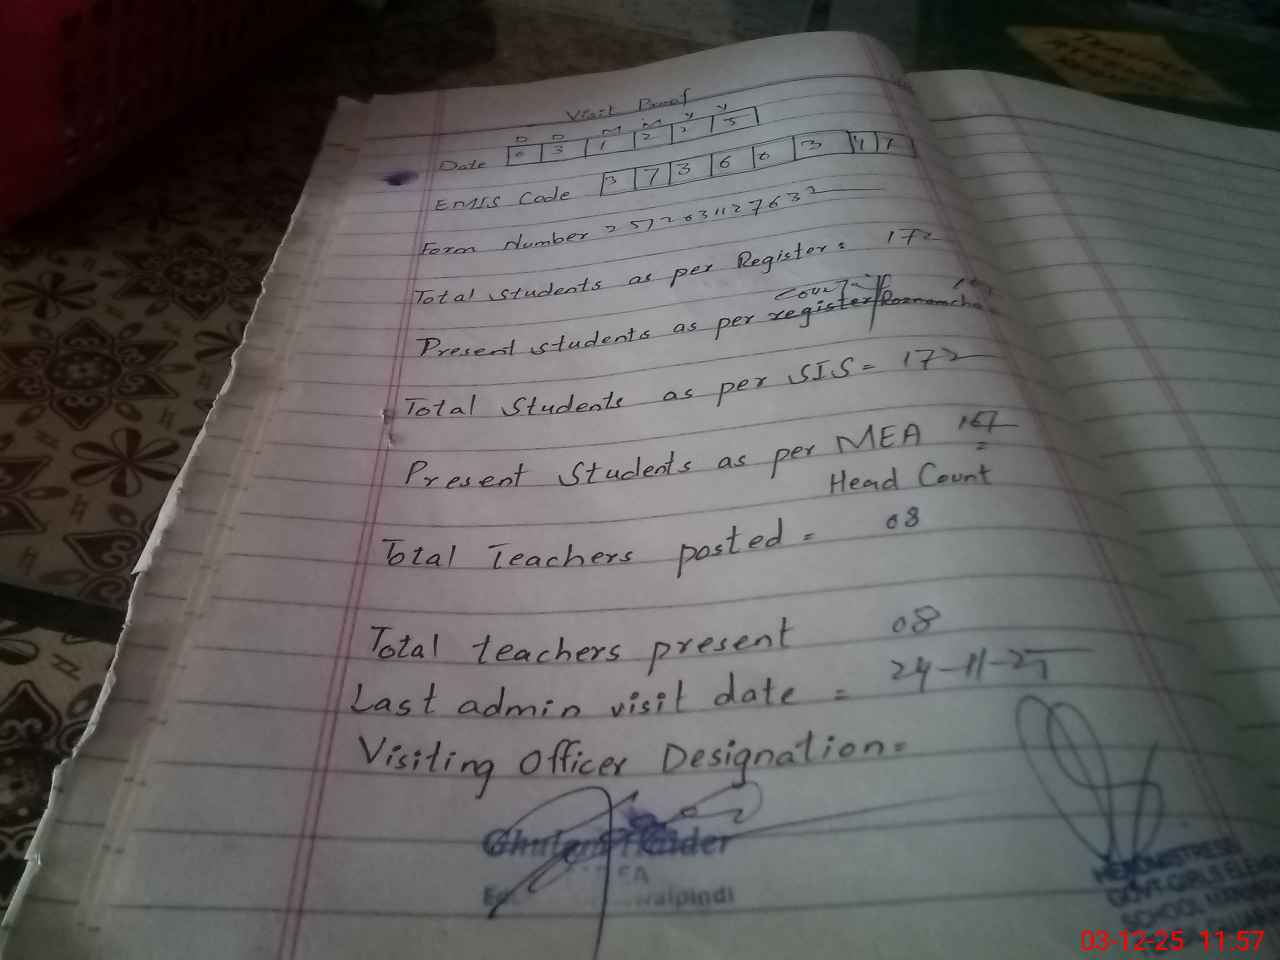 Visit Proof
D D M M Y Y
Date 0 3 1 2 2 5
EMIS Code 3 7 3 6 0 3
Form Number 2572031127632
Total students as per Register: 172
Present students as per register/Roznamcha
Total Students as per SIS = 172
Present Students as per MEA 167
Head Count
Total Teachers posted = 08
Total teachers present 08
Last admin visit date = 24-11-25
Visiting Officer Designation=
Ghulam Haider
HEADMISTRESS
GOVT. GIRLS ELEM
SCHOOL
03-12-25 11:57